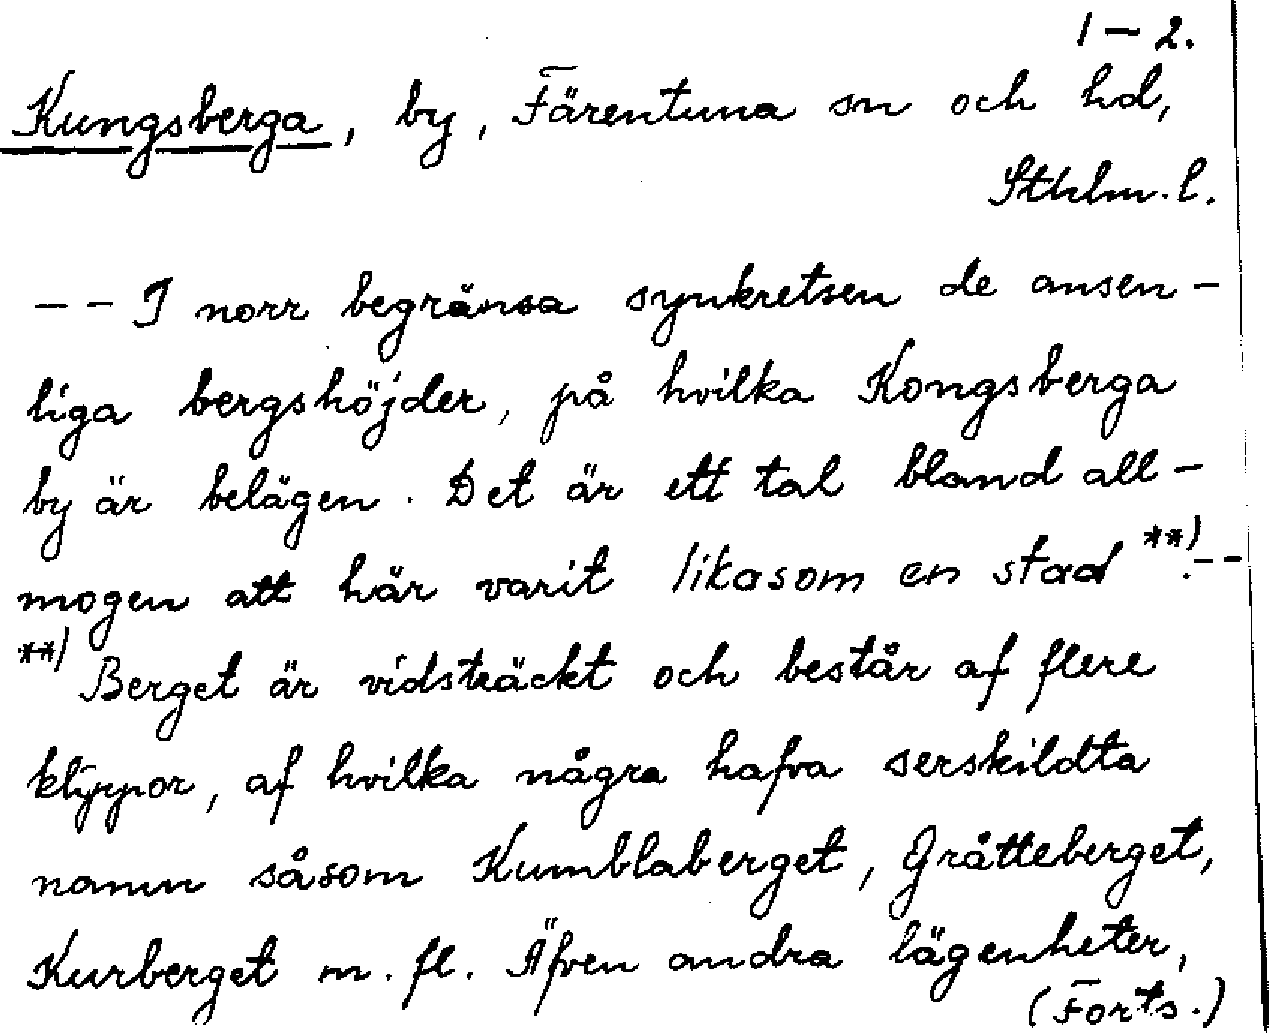 1 – 2.
Kungsberga, by, Färentuna sn och hd,
Sthlm. l.
– – I norr begränsa synkretsen de ansen-
liga bergshöjder, på hvilka Kongsberga
by är belägen. Det är ett tal bland all-
mogen att här varit likasom en stad **). – –
**) Berget är vidsträckt och består af flere
klippor, af hvilka några hafva serskildta
namn såsom Kumblaberget, Gråtteberget,
Kurberget m. fl. Äfven andra lägenheter,
(Forts.)